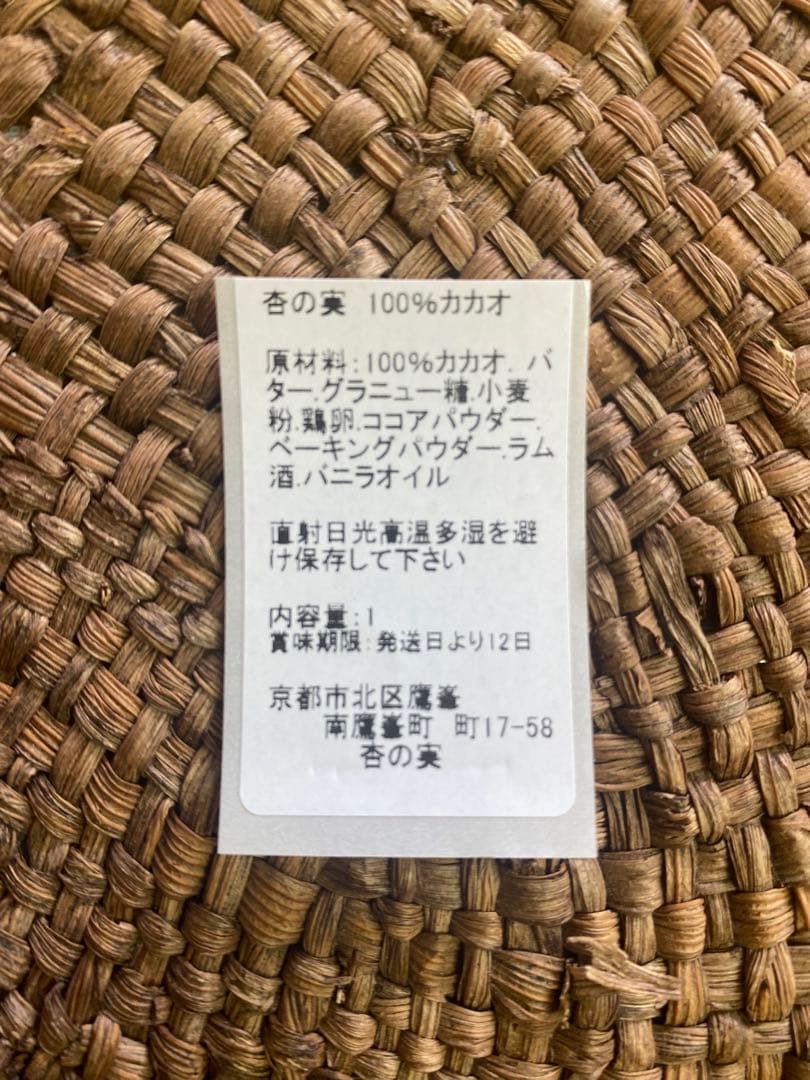 杏の実 100%カカオ
原材料:100%カカオ. バ
ター.グラニュー糖.小麦
粉.鶏卵.ココアパウダー.
ベーキングパウダー.ラム
酒.バニラオイル
直射日光高温多湿を避
け保存して下さい
内容量:1
賞味期限:発送日より12日
京都市北区鷹峯
南鷹峯町 町17-58
杏の実